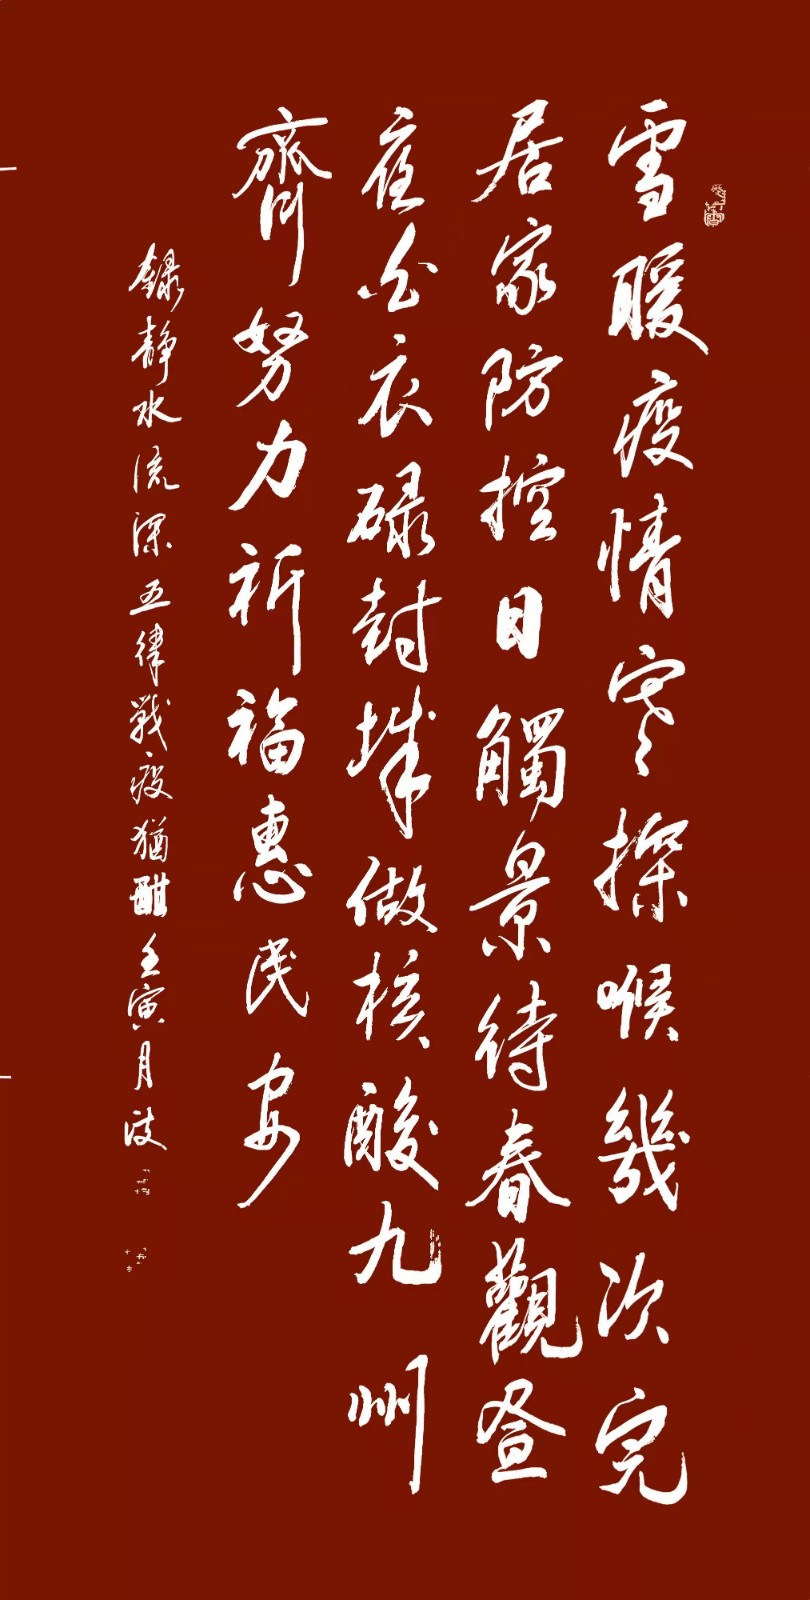 雪暖疫情寒探喉幾次完
居家防控日觸景待春觀疊
夜白衣碌封城做核酸九州
齊努力祈福惠民安
録静水流深五律戰疫猶酣壬寅月波